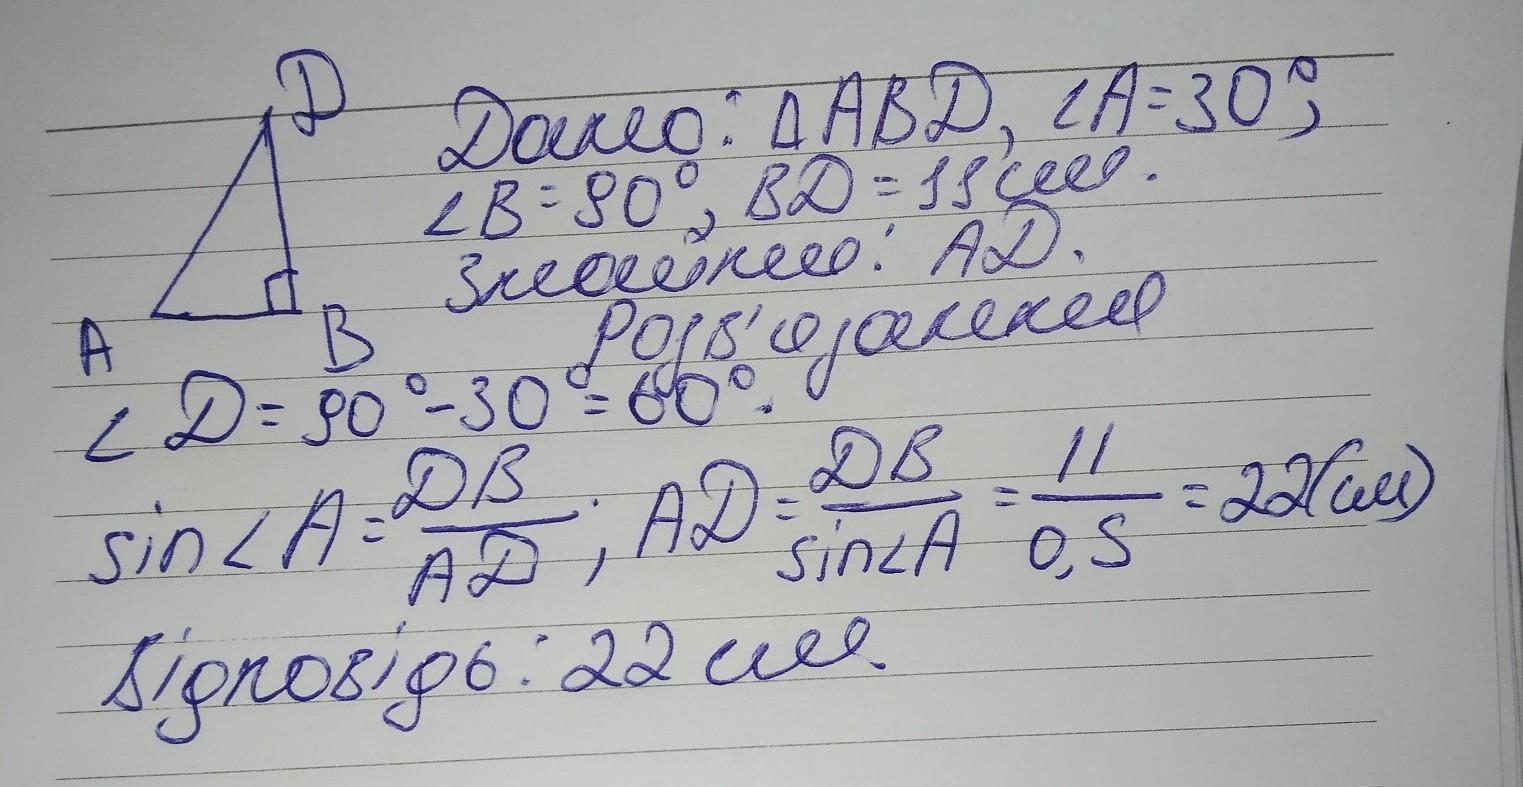 D
Дано: ΔABD, ∠A=30°,
∠B=90°, BD=11 см.
Знайти: AD.
A B
Розв'язання
∠D=90°-30°=60°.
sin∠A=DB/AD; AD=DB/sin∠A=11/0,5=22(см)
Відповідь: 22 см